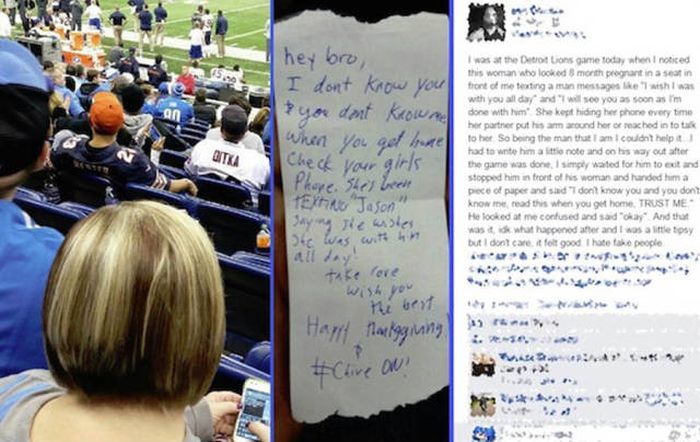 23
90
DITKA
hey bro,
I dont know you
& you dont know me
when you get home
Check your girls
Phone. She's been
TEXTING "Jason"
Saying she wishes
She was with him
all day!
take care
wish you
the best
Happy Thanksgiving!
&
#Chive ON!
I was at the Detroit Lions game today when I noticed
this woman who looked 8 month pregnant in a seat in
front of me texting a man messages like "I wish I was
with you all day" and "I will see you as soon as I'm
done with him". She kept hiding her phone every time
her partner put his arm around her or reached in to talk
to her. So being the man that I am I couldn't help it...I
had to write him a little note and on his way out after
the game was done, I simply waited for him to exit and
stopped him in front of his woman and handed him a
piece of paper and said "I don't know you and you don't
know me, read this when you get home, TRUST ME."
He looked at me confused and said "okay". And that
was it, idk what happened after and I was a little tipsy
but I don't care, it felt good. I hate fake people.